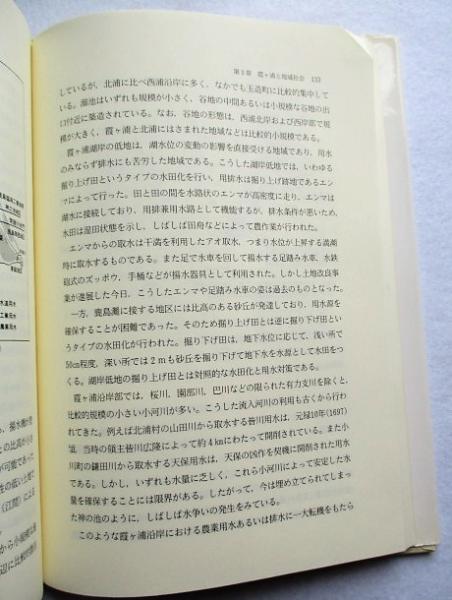 第3章 霞ヶ浦と地域社会 133
しているが、北浦に比べ西浦沿岸に多く、なかでも玉造町に比較的集中して
いる。溜池はいずれも規模が小さく、谷地の中間あるいは小規模な谷地の出
口付近に築造されている。なお、谷地の形態は、西浦北岸および西岸部で規
模が大きく、霞ヶ浦と北浦にはさまれた地域などは比較的小規模である。
霞ヶ浦湖岸の低地は、湖水位の変動の影響を直接受ける地域であり、用水
のみならず排水にも苦労した地域である。こうした湖岸低地では、いわゆる
掘り上げ田というタイプの水田化を行い、用排水は掘り上げ跡地であるエン
マによって行った。田と田の間を水路状のエンマが高密度に走り、エンマは
湖水に接続しており、用排兼用水路として機能するが、排水条件が悪いため、
水田は湿田状態を示し、しばしば田舟などによって農作業が行われた。
エンマからの取水は干満を利用したアオ取水、つまり水位が上昇する満潮
時に取水するものである。また足で水車を回して揚水する足踏み水車、水鉄
砲式のズッポウ、手桶などが揚水器具として利用された。しかし土地改良事
業が進展した今日、こうしたエンマや足踏み水車の姿は過去のものとなった。
一方、鹿島灘に接する地区には比高のある砂丘が発達しており、用水源を
確保することが困難であった。そのため掘り上げ田とは逆に掘り下げ田とい
うタイプの水田化が行われた。掘り下げ田は、地下水位に応じて、浅い所で
50cm程度、深い所では2mも砂丘を掘り下げて地下水を水源として水田をつ
くる。湖岸低地の掘り上げ田とは対照的な水田化と用水対策である。
霞ヶ浦沿岸部では、桜川、園部川、巴川などの限られた有力支川を除くと、
比較的規模の小さい小河川が多い。こうした流入河川の利用も古くから行わ
れてきた。例えば北浦村の山田川から取水する皆川用水は、元禄10年(1697)
に、当時の領主皆川広隆によって約4kmにわたって開削されている。また小
川町の鎌田川から取水する天保用水は、天保の凶作を契機に開削された用水
である。しかし、いずれも水量に乏しく、これら小河川によって安定した水
量を確保することには限界がある。したがって、今は埋め立てられてしまっ
た神の池のように、しばしば水争いの発生をみている。
このような霞ヶ浦沿岸における農業用水あるいは排水に一大転機をもたら